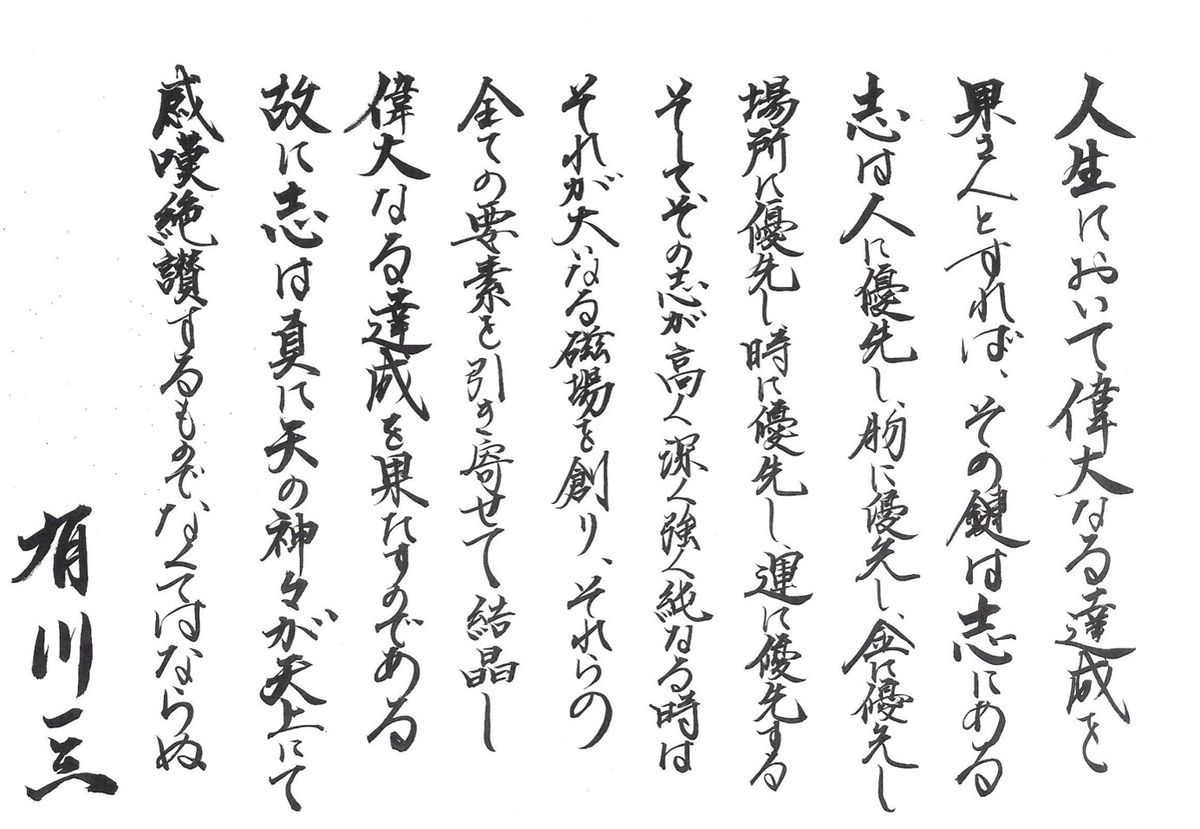 人生において偉大なる達成を
果さんとすれば、その鍵は志にある
志は人に優先し、物に優先し、金に優先し
場所に優先し、時に優先し、運に優先する
そしてその志が高く深く強く純なる時は
それが大いなる磁場を創り、それらの
全ての要素を引き寄せて結晶し
偉大なる達成を果たすのである
故に志は真に天の神々が天上にて
感嘆絶讃するものでなくてはならぬ
有川